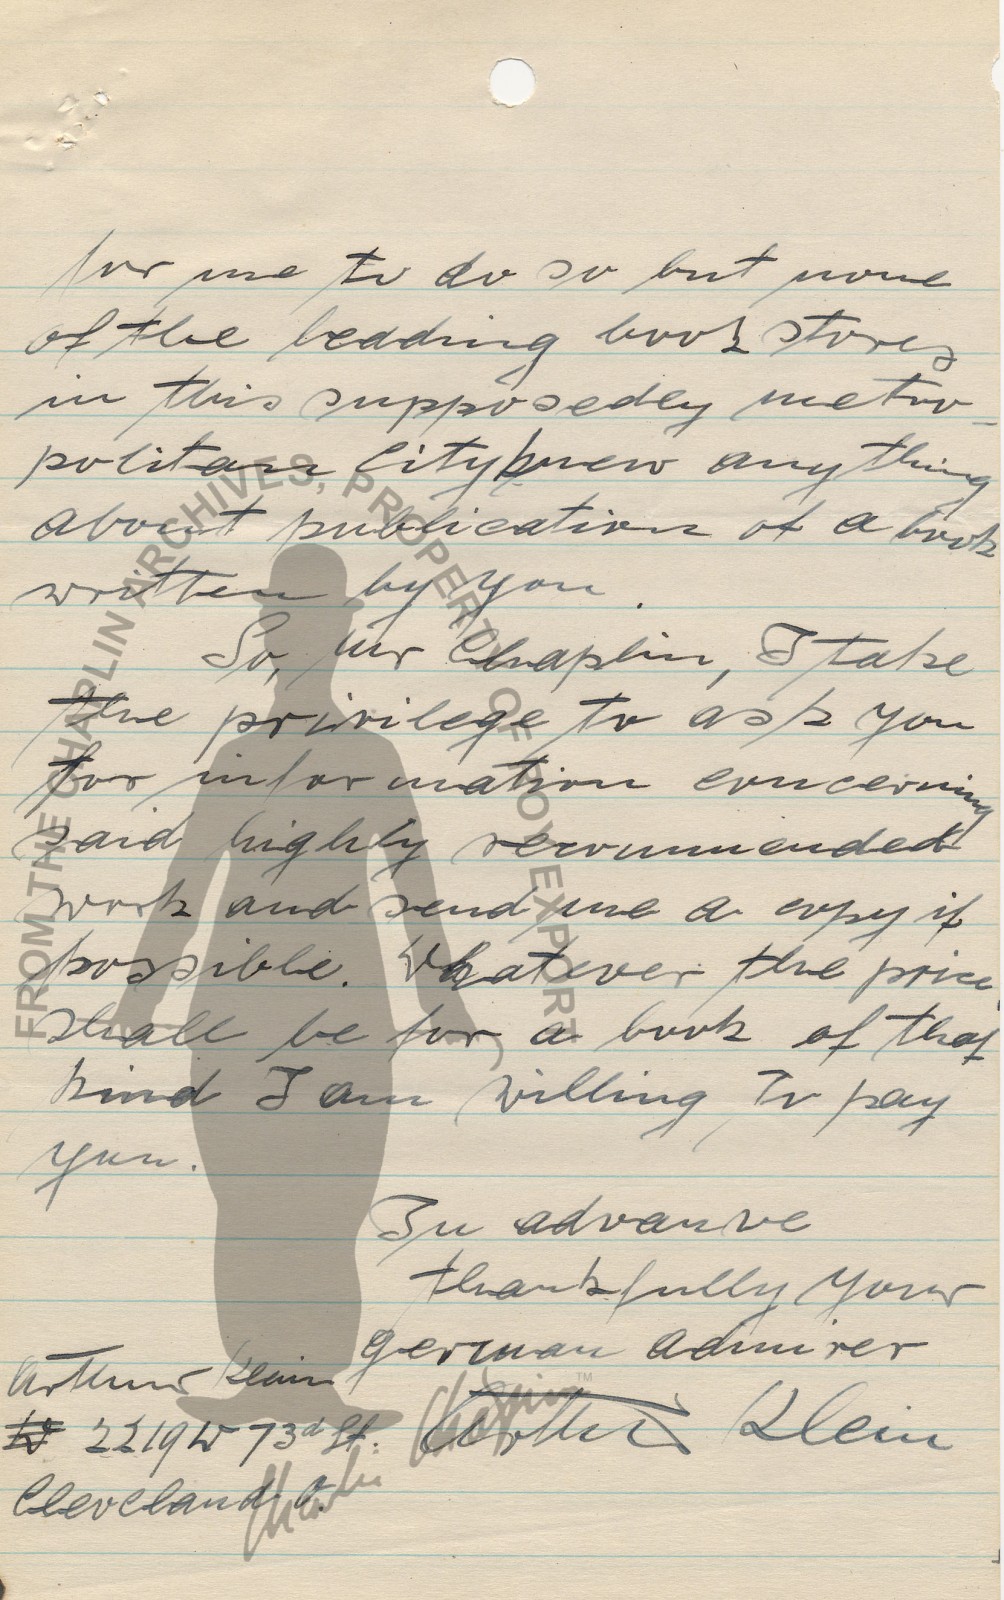 for me to do so but none
of the leadding book stores
in this supposedly metro-
politan City knew anything
about publication of a book
written by you.
So, Mr Chaplin, I take
the privilege to ask you
for information concerning
said highly recommended
work and send me a copy if
possible. Whatever the price
shall be for a book of that
kind I am willing to pay
you.
In advance
thankfully your
german admirer
Arthur Klein
Arthur Klein
2219 W 73d St.
Cleveland O.
FROM THE CHAPLIN ARCHIVES, PROPERTY OF ROY EXPORT
Charlie Chaplin™